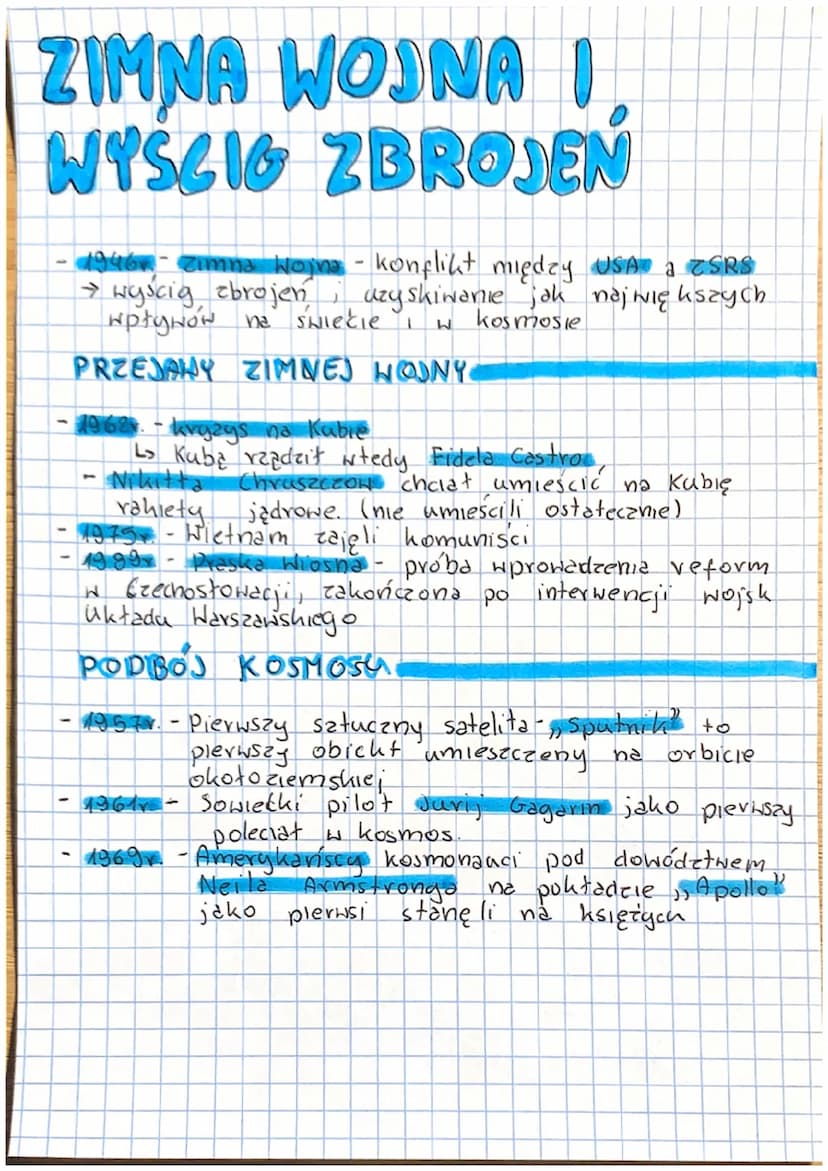 ZIMNA WOJNA I
WYŚCIG ZBROJEŃ
- 1946r. - Zimna Wojna - konflikt między USA a ZSRS
→ wyścig zbrojeń i uzyskiwanie jak największych
wpływów na świecie i w kosmosie
PRZEJAWY ZIMNEJ WOJNY
- 1962r. - kryzys na Kubie
↳ Kubą rządził wtedy Fidela Castro
- Nikitta Chruszczow chciał umieścić na Kubię
rakiety jądrowe. (nie umieścili ostatecznie)
- 1975r. - Wietnam zajęli komuniści
- 1989r - Praska Wiosna - próba wprowadzenia reform
w Czechosłowacji, zakończona po interwencji wojsk
Układu Warszawskiego
PODBÓJ KOSMOSU
- 1957r. - Pierwszy sztuczny satelita - „Sputnik” to
pierwszy obiekt umieszczony na orbicie
okołoziemskiej
- 1961r - Sowiecki pilot Jurij Gagarin jako pierwszy
poleciał w kosmos.
- 1969r. - Amerykańscy kosmonauci pod dowództwem
Neila Armstronga na pokładzie „Apollo”
jako pierwsi stanęli na księżycu